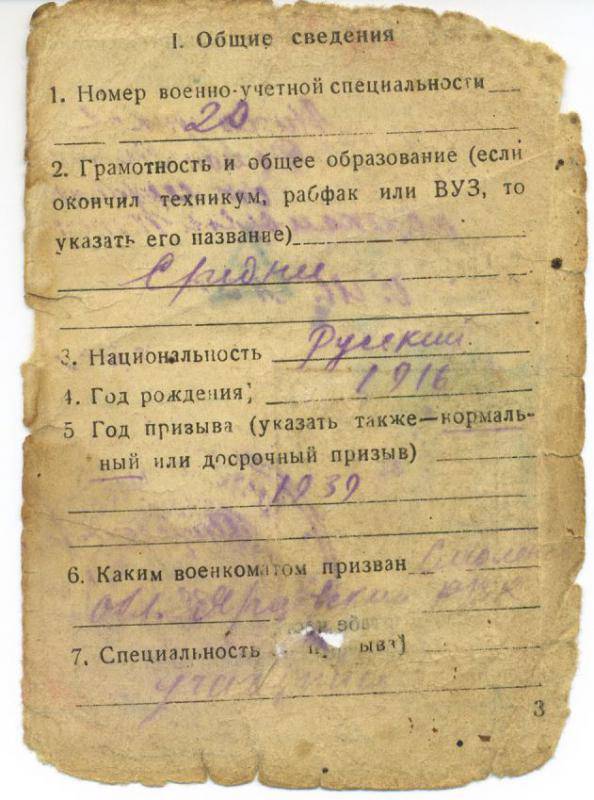 I. Общие сведения
1. Номер военно-учетной специальности
20
2. Грамотность и общее образование (если
окончил техникум, рабфак или ВУЗ, то
указать его название)
Средни
3. Национальность Русский
4. Год рождения, 1916
5 Год призыва (указать также—нормаль-
ный или досрочный призыв)
1939
6. Каким военкоматом призван Смоленс
обл. рвк
7. Специальность ыва)
3